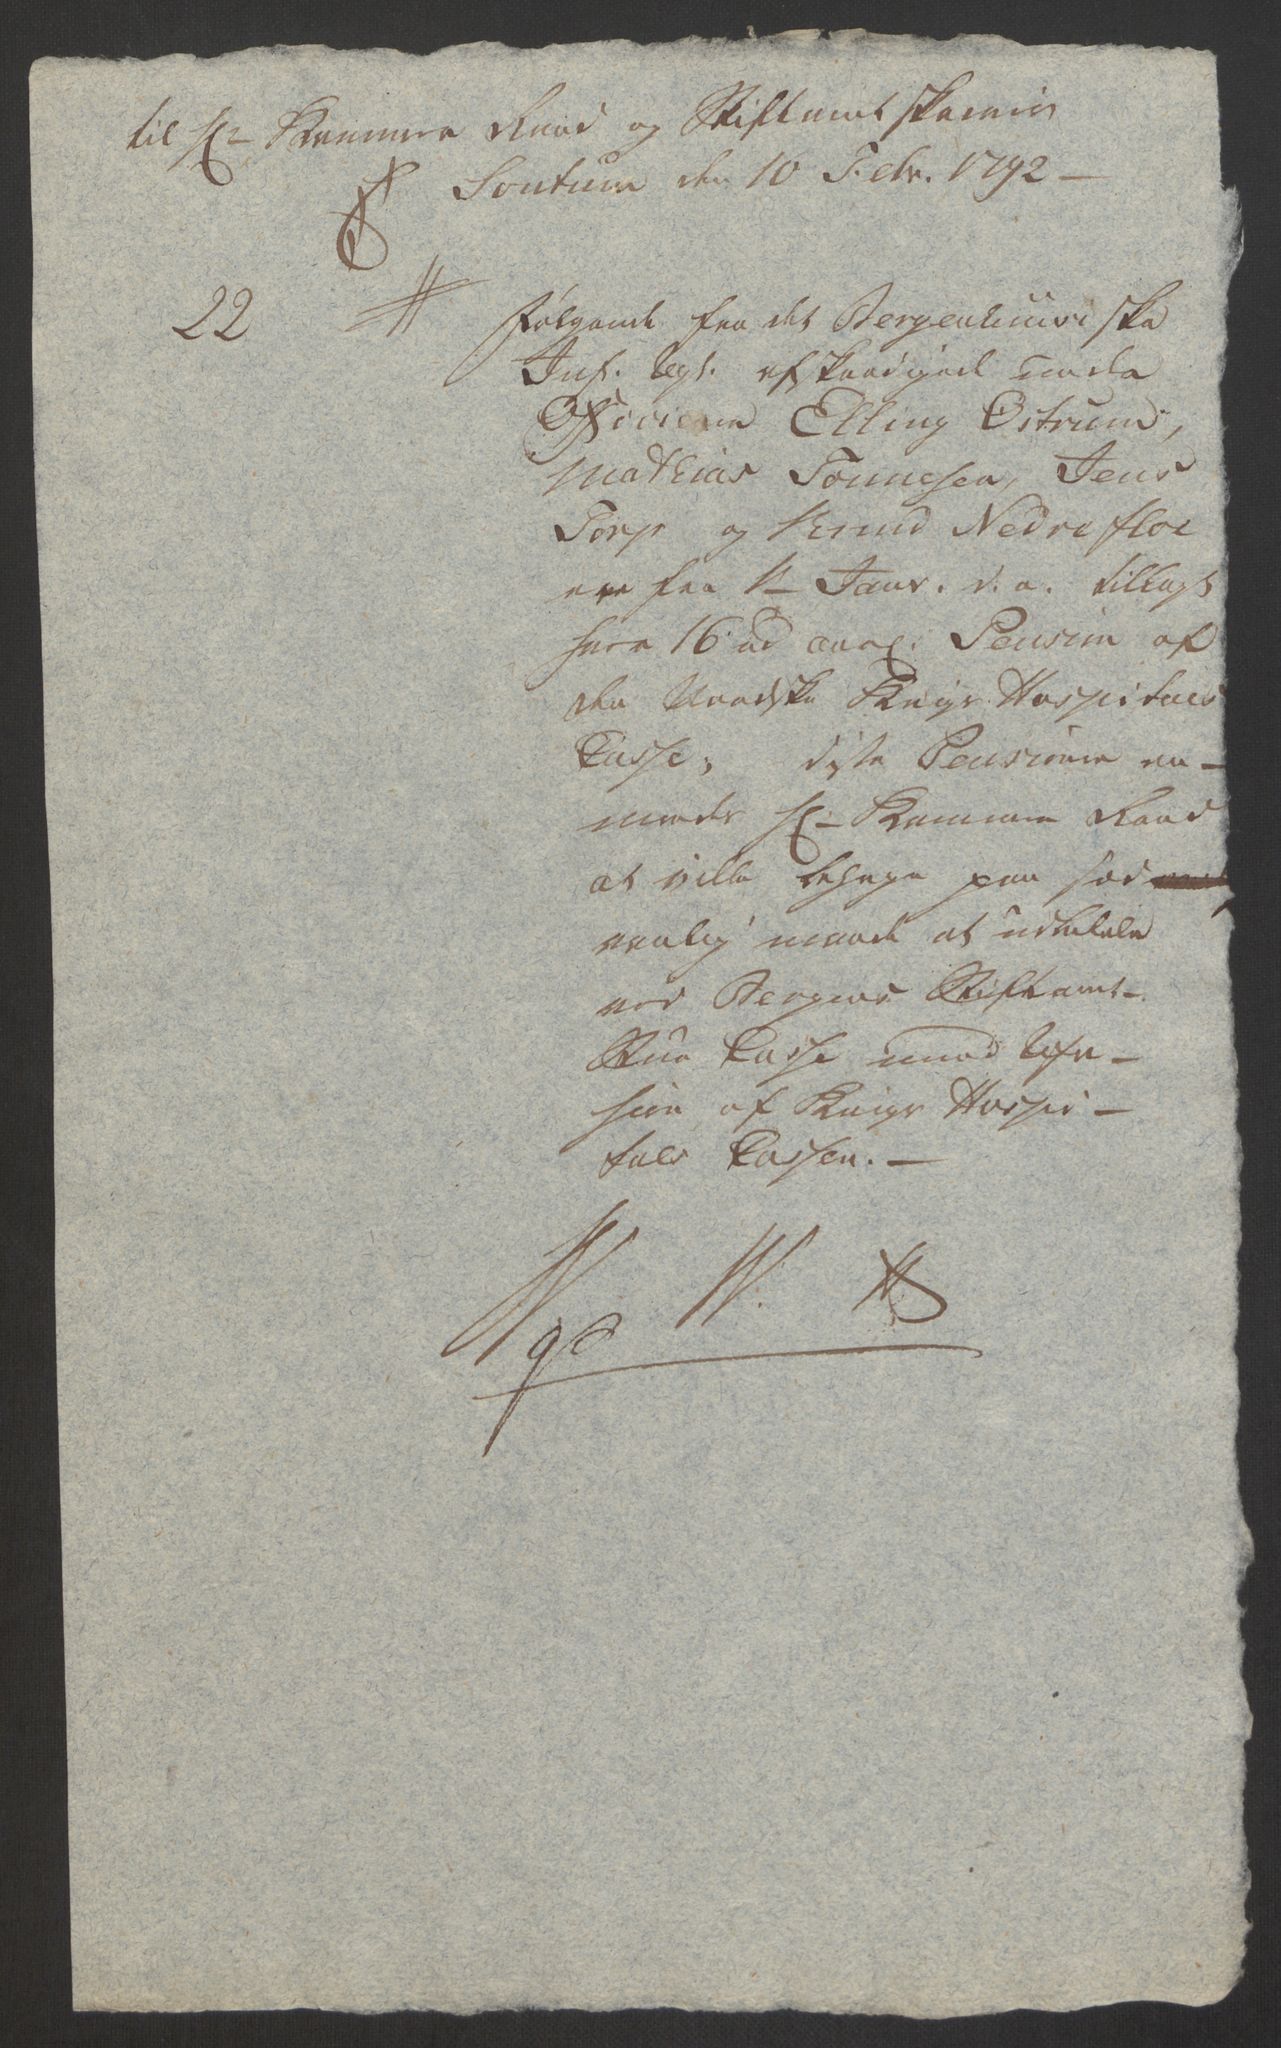 til Hr Kammer Raad og Stiftamtskriver
Sontum den 10 Febr. 1792 —
22
Følgende fra det Bergenhuusiske
Inf. Regt. afskeedigede under
Officierer Elling Østrum,
Mathias Tonnesen, Jens
Torp og Knud Nedrefloe
ere fra 1te Janv. d. a. tillagt
hver 16 rd aarl. Pension af
den Norske Krigs Hospitals
Casse, disse Pensioner an-
modes Hr Kammer Raad
at ville behage paa sæd
vanlig maade at udbetale
ved Bergens Stiftamt-
Stue Casse mod Refu-
sion af Krigs Hospi-
tals Cassen. —